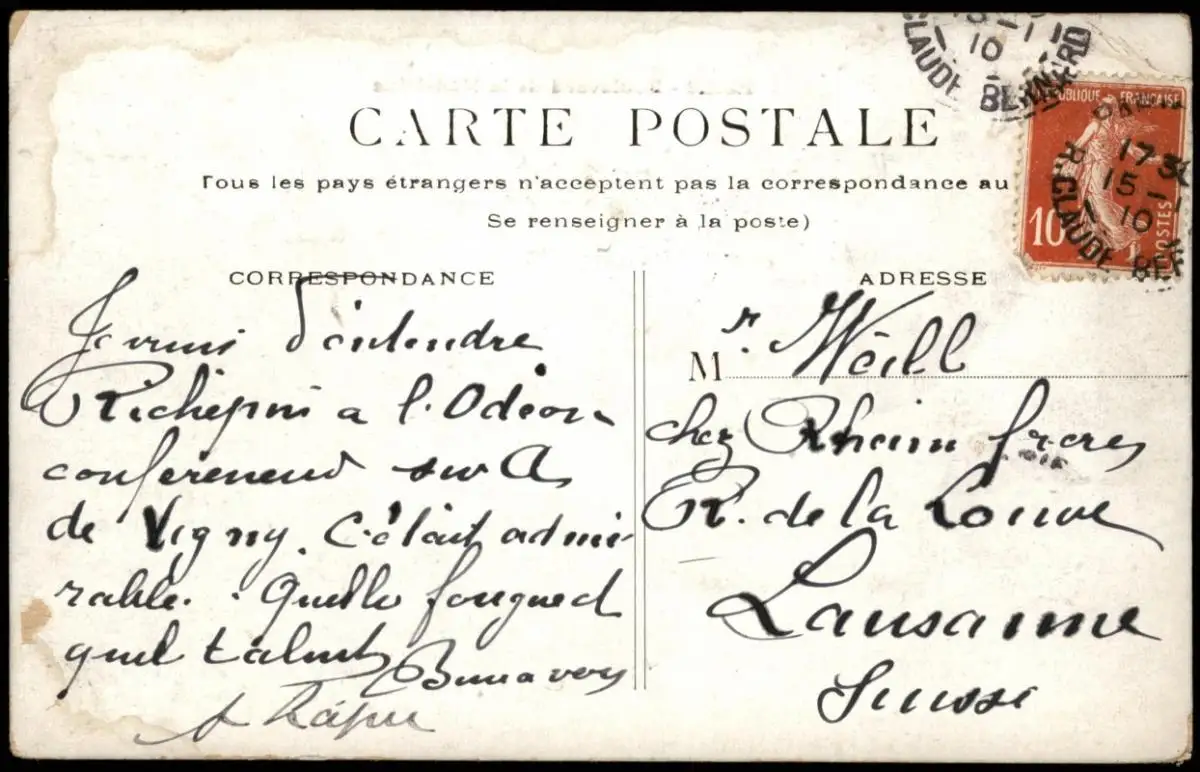 CARTE POSTALE
Tous les pays étrangers n'acceptent pas la correspondance au
Se renseigner à la poste)
CORRESPONDANCE
ADRESSE
Je viens d'entendre
Richepin a l'Odéon
conférencer sur A
de Vigny. C'était admi-
rable. Quelle fougue et
quel talent
Bien a vous
Mr. Weill
chez Rheim freres
R. de la Louve
Lausanne
Suisse
RÉPUBLIQUE FRANÇAISE
10
POSTES
10
CLAUDE BERNARD
17 30
15 - 1
10
R. CLAUDE BER